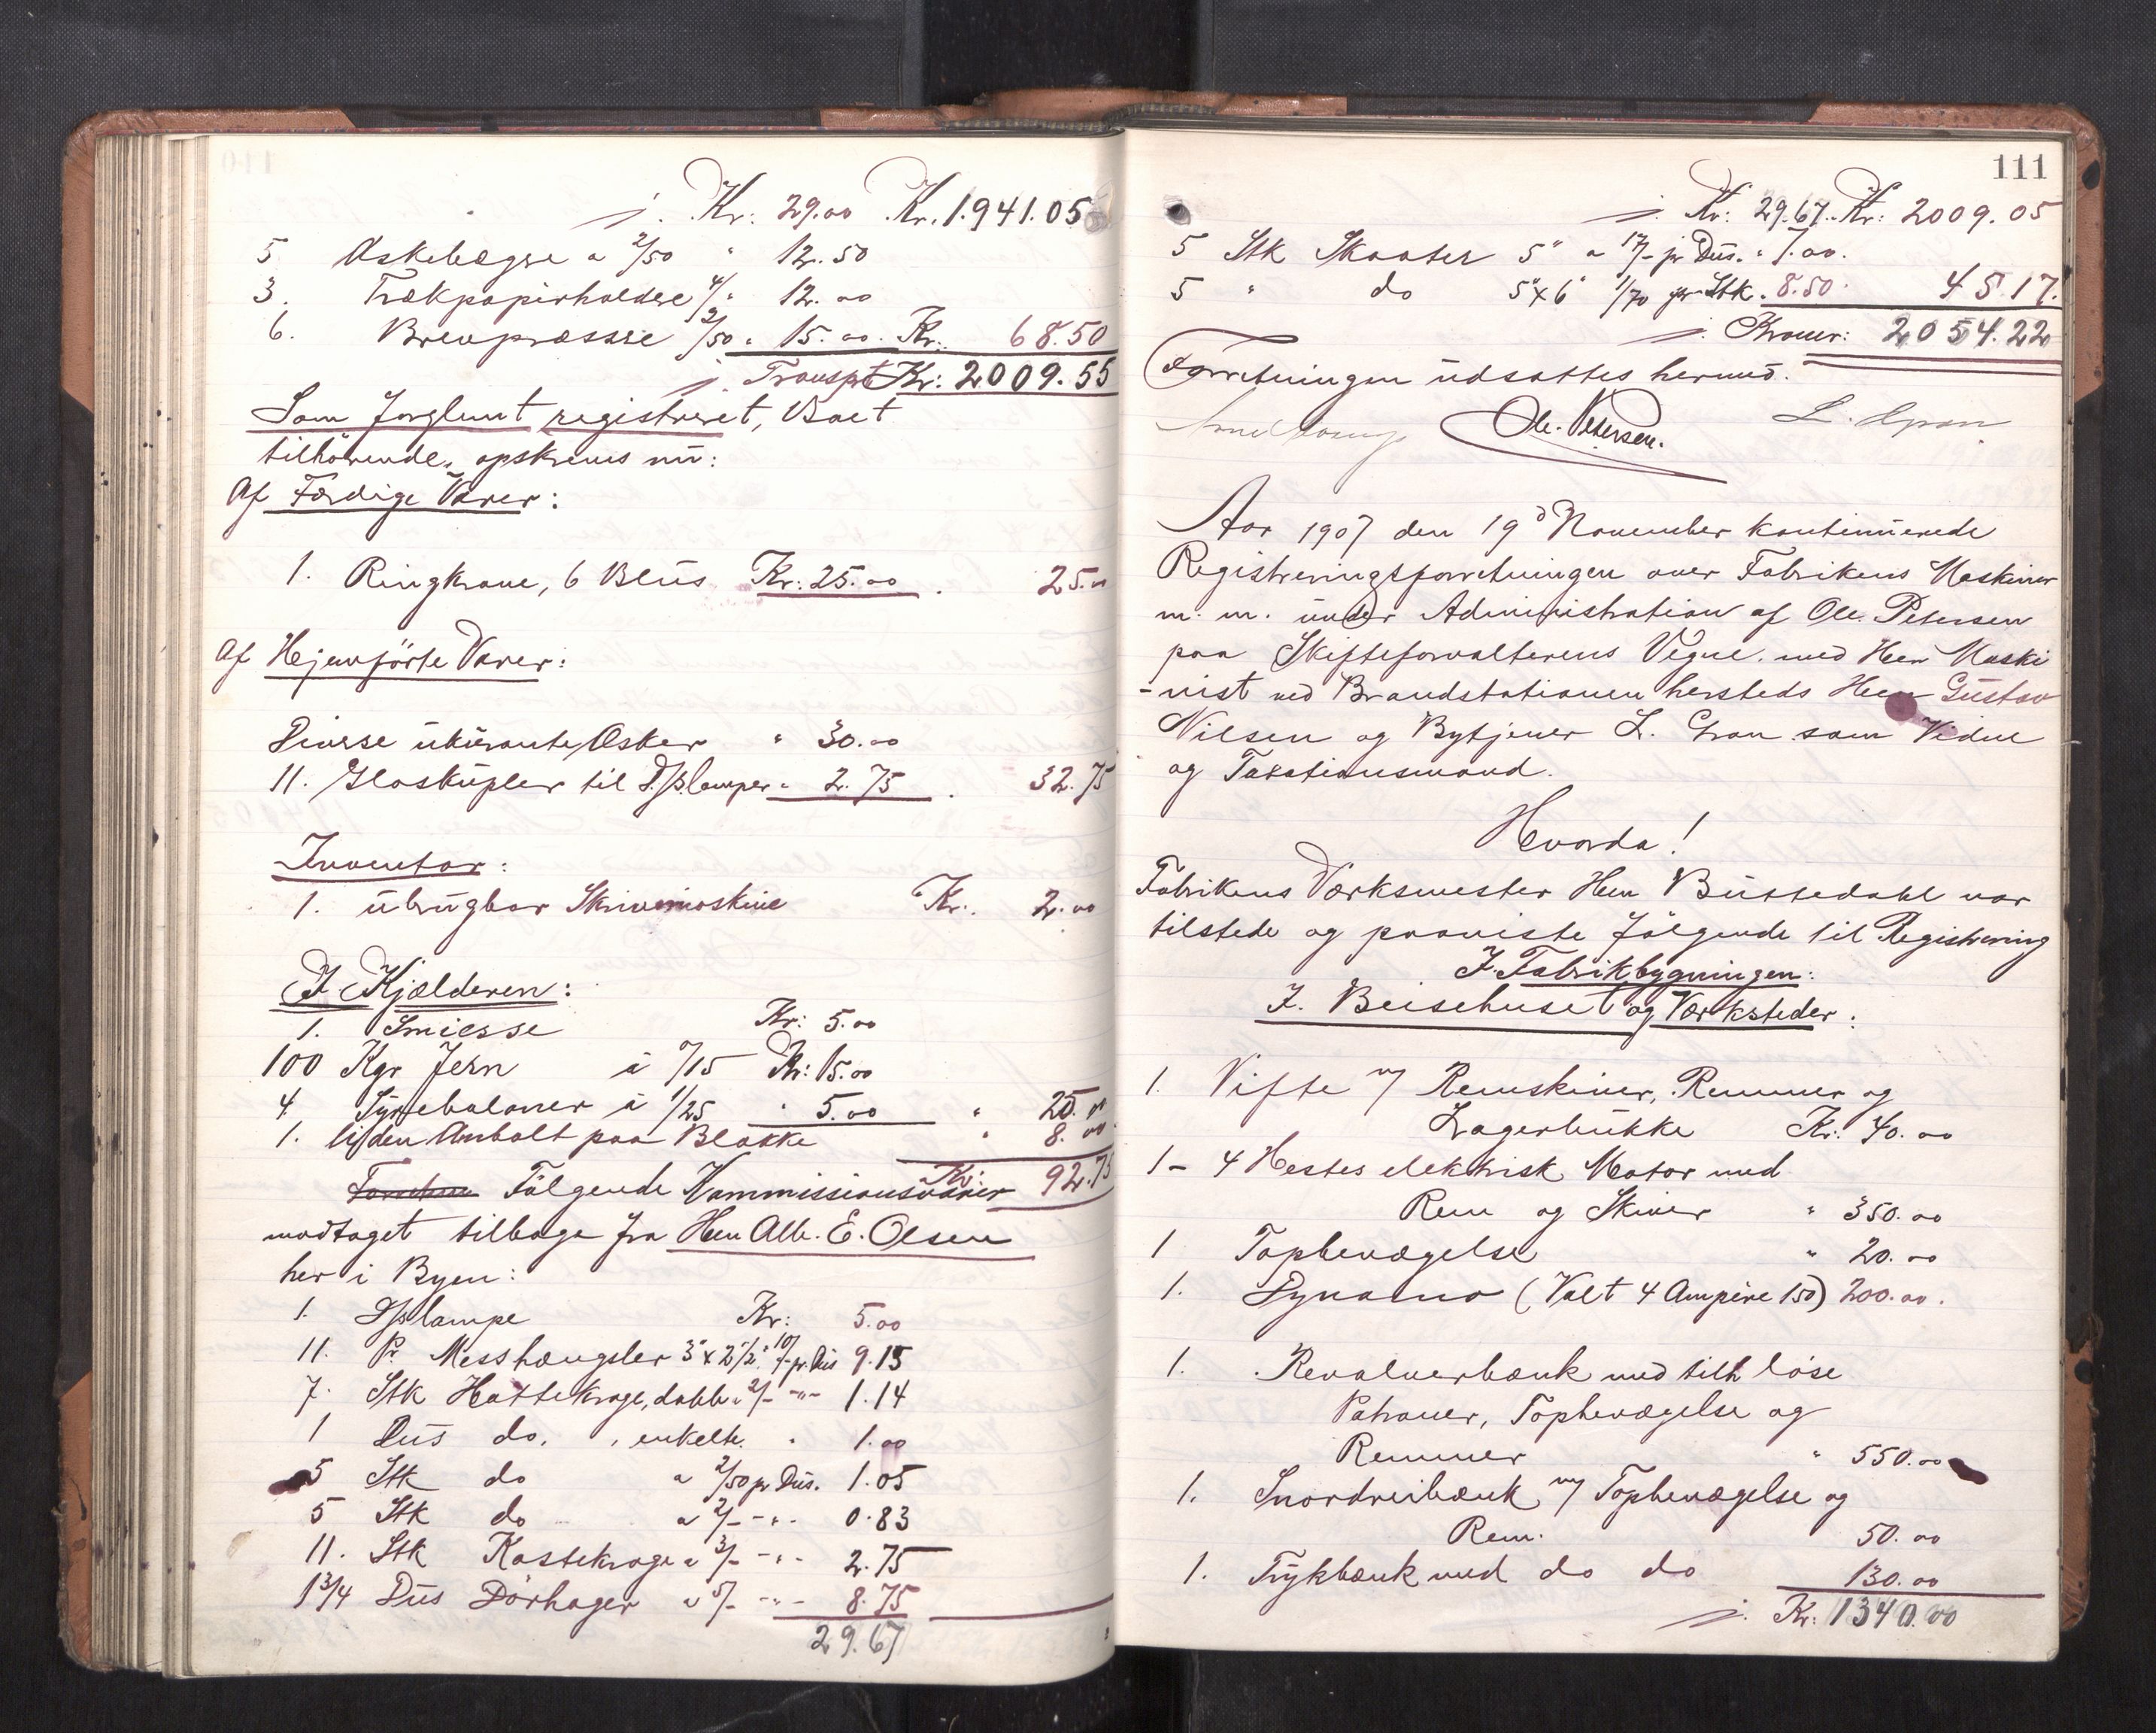 j. Kr: 29.00 Kr. 1.941.05
5 Askebægre a 2/50 " 12.50
3. Trækpapirholdere 4/" 12.00
6. Brevpræssse 2/50 " 15.00. Kr. 68.50
j. Transpt Kr: 2009.55
Som forglemt registreret, Boet
tilhörende, opskreves nu:
Af Færdige Varer:
1. Ringkrone, 6 Blus Kr: 25.00 . 25.00
Af Hjemførte Varer:
Diverse ukurante Æsker " 30.00
11. Glaskupler til lamper " 2.75 . 32.75
Inventar:
1. ubrugbar Skrivemaskine Kr. 2.00
I Kjælderen:
1. Smiesse Kr: 5.00
100 Kgr Jern à "/15 Kr: 15.00
4. Syreballoner à 1/25 " 5.00 " 25.00
1. liden Ambolt paa Blokke " 8.00
Følgende Kommissionsvarer Kr. 92.75
modtaget tilbage fra Herr Alb. E. Olsen
her i Byen:
1. lampe Kr: 5.00
11. Pr Messhængsler 3" x 2 1/2" 10/- pr. Dus 9.15
7. Stk Hatteknage, dobb. " 2/- -"- 1.14
1 Dus do. , enkelte. " 1.00
5 Stk do a 2/50 pr Dus. 1.05
5 Stk do a 2/- -"- 0.83
11. Stk Kosteknage a 3/- -"- 2.75
1 3/4 Dus Dörhager a 5/- -"- 8.75
29.67
111
j. Kr: 29.67. Kr: 2009.05
5 Stk Skaater 5" a 17/- pr Dus. " 7.00.
5 " do 5"x6" 1/70 pr Stk. 8.50 45.17.
j. Kroner: 2054.22
Forretningen udsattes hermed.
Ole. Petersen. L. Gran
Aar 1907 den 19d November kontinuerede
Registreringsforretningen over Fabrikens Maskiner
m. m. under Administration af Ole. Petersen
paa Skifteforvalterens Vegne. med Herr Maski
-nist ved Brandstationen hersteds Herr Gustav
Nilsen og Bytjener L. Gran som Vidne
og Taxationsmand.
Hvorda!
Fabrikens Værksmester Herr Bussedahl var
tilstede og paaviste følgende til Registrering
I. Fabrikbygningen:
I. Beisehuset og Værksteder:
1. Vifte m/ Remskiver, Remmer og
Lagerbukke Kr: 40.00
1 - 4 Hestes elektrisk Motor med
Rem og Skiver " 350.00
1 Topbevægelse " 20.00
1. Dynamo (Volt 4 Ampère 150) 200.00.
1. Revolverbænk med tilh löse
Patroner, Topbevægelse og
Remmer " 550.00
1. Snordreibænk m/ Topbevægelse og
Rem. 50.00
1. Trykbænk med do do 130.00
j. Kr: 1340.00